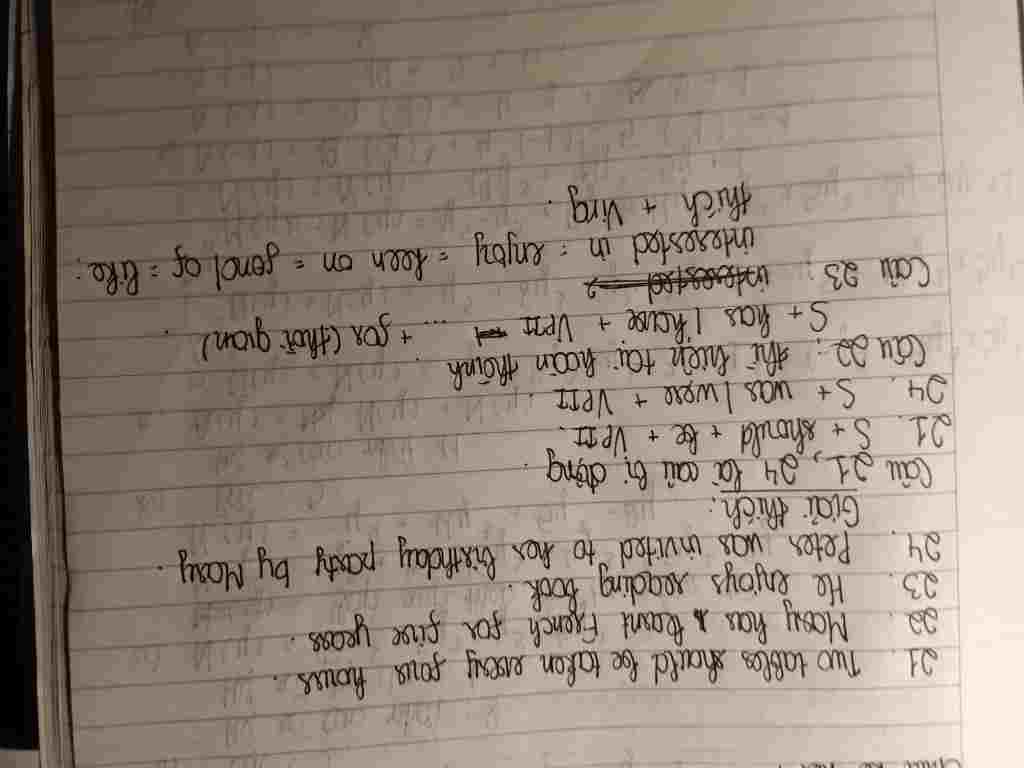 21. Two tables should be taken every four hours.
22. Mary has leant French for five years.
23. He enjoys reading book.
24. Peter was invited to her birthday party by Mary.
Giải thích:
Câu 21, 24 là câu bị động.
21. S + should + be + VPII.
24. S + was / were + VPII.
Câu 22: thì hiện tại hoàn thành
S + has / have + VPII ... + for (thời gian).
Câu 23:
interested in = enjoy = keen on = fond of = like:
thích + Ving.